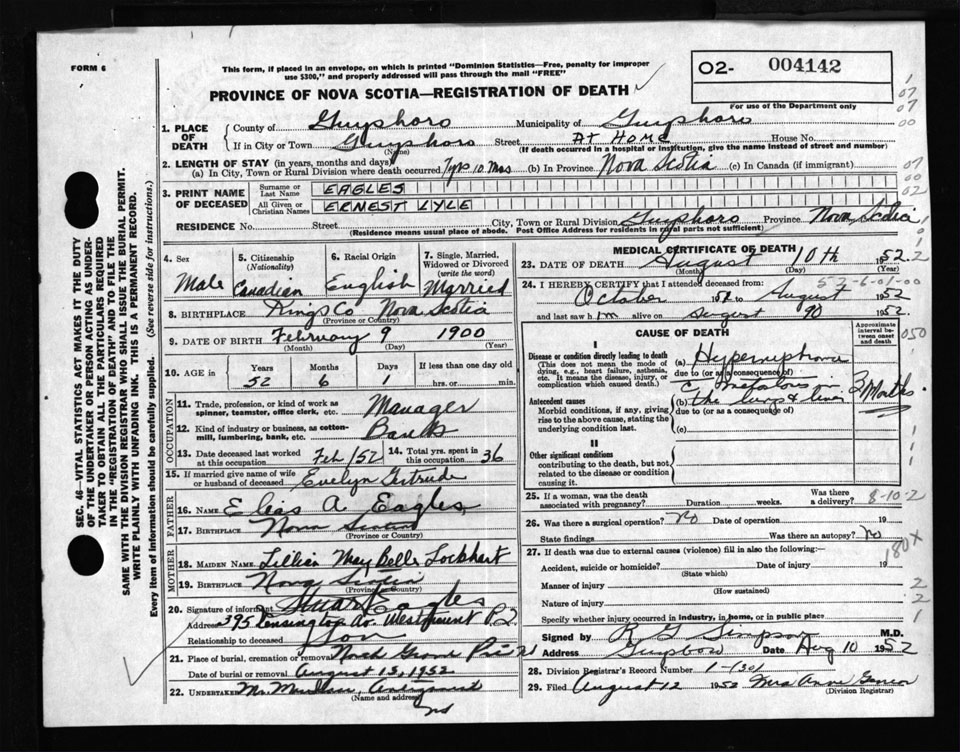 FORM 6
This form, if placed in an envelope, on which is printed "Dominion Statistics—Free, penalty for improper
use $300," and properly addressed will pass through the mail "FREE"
O2- 004142
For use of the Department only
PROVINCE OF NOVA SCOTIA—REGISTRATION OF DEATH
1. PLACE OF DEATH
County of Guysboro Municipality of Guysboro
If in City or Town Guysboro Street AT HOME House No.
(Name) (If death occurred in a hospital or institution, give the name instead of street and number)
2. LENGTH OF STAY (in years, months and days)
(a) In City, Town or Rural Division where death occurred 7 yrs 10 mos (b) In Province Nova Scotia (c) In Canada (if immigrant)
3. PRINT NAME OF DECEASED
Surname or Last Name EAGLES
All Given or Christian Names ERNEST LYLE
RESIDENCE No. Street City, Town or Rural Division Guysboro Province Nova Scotia
(Residence means usual place of abode. Post Office Address for residents in rural parts not sufficient)
4. Sex Male
5. Citizenship (Nationality) Canadian
6. Racial Origin English
7. Single, Married, Widowed or Divorced (write the word) Married
8. BIRTHPLACE Kings Co Nova Scotia
(Province or Country)
9. DATE OF BIRTH February 9 1900
(Month) (Day) (Year)
10. AGE in Years 52 Months 6 Days 1 If less than one day old hrs. or min.
OCCUPATION
11. Trade, profession, or kind of work as spinner, teamster, office clerk, etc. Manager
12. Kind of industry or business, as cotton-mill, lumbering, bank, etc. Bank
13. Date deceased last worked at this occupation Feb/52
14. Total yrs. spent in this occupation 36
15. If married give name of wife or husband of deceased Evelyn Gertrude
FATHER
16. NAME Elias A Eagles
17. BIRTHPLACE Nova Scotia
(Province or Country)
MOTHER
18. MAIDEN NAME Lillian May Belle Lockhart
19. BIRTHPLACE Nova Scotia
(Province or Country)
20. Signature of informant Stuart Eagles
Address 395 Kensington Av. Westmount P.Q.
Relationship to deceased Son
21. Place of burial, cremation or removal Grand
Date of burial or removal August 13, 1952
22. UNDERTAKER
(Name and address)
NS
MEDICAL CERTIFICATE OF DEATH
23. DATE OF DEATH August 10th 1952
(Month) (Day) (Year)
24. I HEREBY CERTIFY that I attended deceased from:
October 1952 to August 1952
and last saw him alive on August 1952.
CAUSE OF DEATH
Approximate interval between onset and death
I
Disease or condition directly leading to death
(This does not mean the mode of dying, e.g., heart failure, asthenia, etc. It means the disease, injury, or complication which caused death.)
(a) Hypernephroma
due to (or as a consequence of)
Antecedent causes
Morbid conditions, if any, giving rise to the above cause, stating the underlying condition last.
(b) the lungs & liver 3 Months
due to (or as a consequence of)
(c)
II
Other significant conditions
contributing to the death, but not related to the disease or condition causing it.
25. If a woman, was the death associated with pregnancy? Duration weeks. Was there a delivery? 8-10-2
26. Was there a surgical operation? No Date of operation 19
State findings Was there an autopsy? No
27. If death was due to external causes (violence) fill in also the following:—
Accident, suicide or homicide? Date of injury 19
(State which)
Manner of injury
(How sustained)
Nature of injury
Specify whether injury occurred in industry, in home, or in public place
Signed by R G Simpson M.D.
Address Guysboro Date Aug 10 1952
28. Division Registrar's Record Number 1-1301
29. Filed August 12 1952 Mrs Anne
(Division Registrar)
SEC. 46—VITAL STATISTICS ACT MAKES IT THE DUTY
OF THE UNDERTAKER OR PERSON ACTING AS UNDER-
TAKER TO OBTAIN ALL THE PARTICULARS REQUIRED
IN THE "REGISTRATION OF DEATH" AND TO FILE THE
SAME WITH THE DIVISION REGISTRAR WHO SHALL ISSUE THE BURIAL PERMIT.
WRITE PLAINLY WITH UNFADING INK. THIS IS A PERMANENT RECORD.
Every item of information should be carefully supplied. (See reverse side for instructions.)